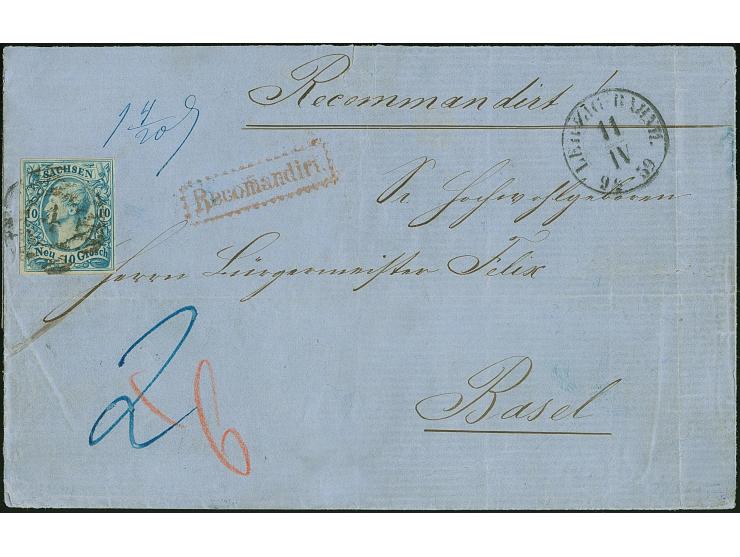 Recommandirt!
LEIPZIG BAHNH.
11
IV
59
Recomandirt.
SACHSEN
10 10
Neu 10 Grosch
Sr Hochwohlgeboren
Herrn Bürgermeister Felix
2
6
Basel